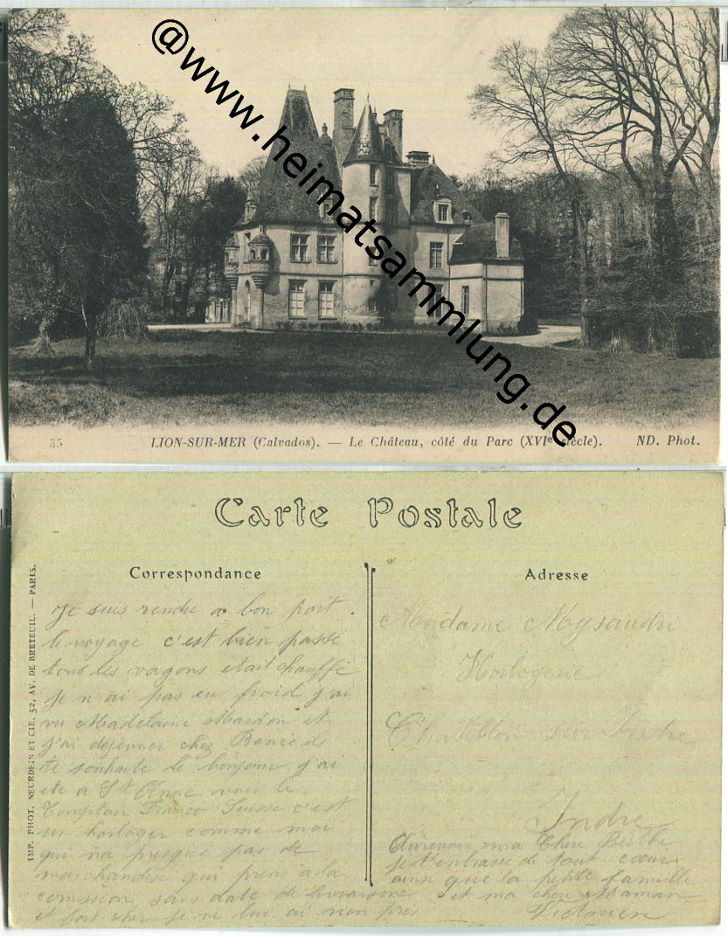 @www.heimatsammlung.de
35 LION-SUR-MER (Calvados). — Le Château, côté du Parc (XVIe siècle). ND. Phot.
Carte Postale
Correspondance
Adresse
IMP. PHOT. NEURDEIN ET CIE. 52, AV. DE BRETEUIL. — PARIS.
Je suis rendu a bon port.
le voyage c'est bien passé
tous les vagons etait chauffé
je n'ai pas eu froid j'ai
vu Madelaine Mardon et
j'ai dejeuner chez
te souhaite le bonjour j'ai
ete a St Anne voir le
Comptoir Franco Suisse c'est
un horloger comme moi
qui n'a presque pas de
marchandise qui prens a la
comission sans date de livraison
et fort cher je ne lui ai rien pris
Madame
Horlogerie
Châtillon sur Indre
Indre
Aurevoir ma Cher Berthe
je t'embrasse de tout coeur
ainsi que la petite famille
et ma cher Maman
Victorien